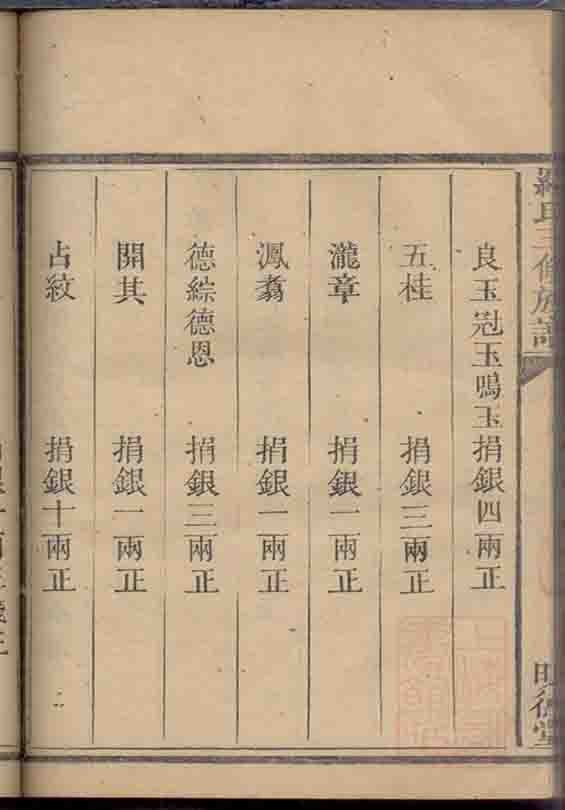 羅氏三修族譜
明德堂
良玉冠玉鳴玉捐銀四兩正
五桂捐銀三兩正
瀧章捐銀一兩正
鳳翥捐銀一兩正
德綜德恩捐銀三兩正
開其捐銀一兩正
占紋捐銀十兩正
二